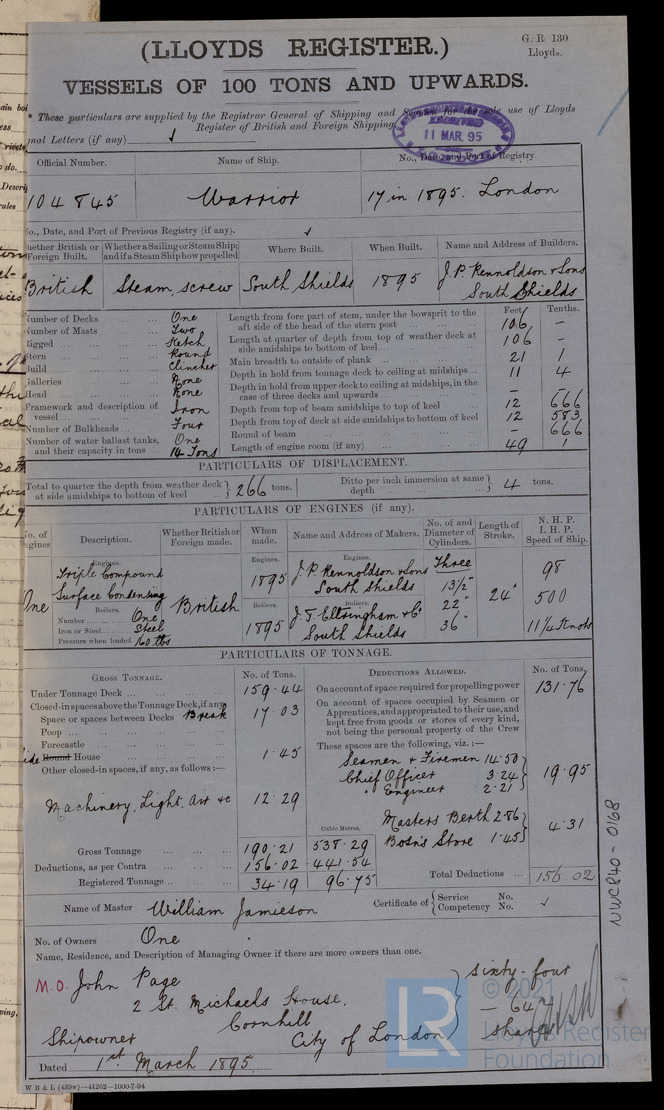 G. R. 130
Lloyds.
(LLOYDS REGISTER.)
VESSELS OF 100 TONS AND UPWARDS.
* These particulars are supplied by the Registrar General of Shipping and Seamen for the sole use of Lloyds
Register of British and Foreign Shipping.
11 MAR. 95
nal Letters (if any) ✓
Official Number. Name of Ship. No., Date, and Port of Registry.
104845 Warrior 17 in 1895. London
No., Date, and Port of Previous Registry (if any). ✓
Whether British or Foreign Built. Whether a Sailing or Steam Ship; and if a Steam Ship how propelled Where Built. When Built. Name and Address of Builders.
British Steam, screw South Shields 1895 J. P. Rennoldson & Sons
South Shields
Number of Decks One
Number of Masts Two
Rigged Ketch
Stern Round
Build Clincher
Galleries None
Head None
Framework and description of
vessel Iron
Number of Bulkheads Four
Number of water ballast tanks, One
and their capacity in tons 14 Tons
Feet Tenths.
Length from fore part of stem, under the bowsprit to the
aft side of the head of the stern post 106 –
Length at quarter of depth from top of weather deck at
side amidships to bottom of keel 106 –
Main breadth to outside of plank 21 1
Depth in hold from tonnage deck to ceiling at midships 11 4
Depth in hold from upper deck to ceiling at midships, in the
case of three decks and upwards – –
Depth from top of beam amidships to top of keel 12 666
Depth from top of deck at side amidships to bottom of keel 12 583
Round of beam – 666
Length of engine room (if any) 49 1
PARTICULARS OF DISPLACEMENT.
Total to quarter the depth from weather deck
at side amidships to bottom of keel } 266 tons. Ditto per inch immersion at same
depth } 4 tons.
PARTICULARS OF ENGINES (if any).
No. of Engines Description. Whether British or Foreign made. When made. Name and Address of Makers. No. of and Diameter of Cylinders. Length of Stroke. N. H. P. I. H. P. Speed of Ship.
One
Engines.
Triple Compound
Surface Condensing
Boilers.
Number One
Iron or Steel Steel
Pressure when loaded 160 lbs
British
Engines.
1895
Boilers.
1895
Engines.
J. P. Rennoldson & Sons
South Shields
Boilers.
J. T. Eltringham & Co
South Shields
Three
13½"
22"
36"
24"
98
500
11¼ Knots
PARTICULARS OF TONNAGE.
GROSS TONNAGE. No. of Tons.
Under Tonnage Deck 159.44
Closed-in spaces above the Tonnage Deck, if any
Space or spaces between Decks Break 17.03
Poop
Forecastle
Side Round House 1.45
Other closed-in spaces, if any, as follows :—
Machinery, Light, Air &c 12.29
Cubic Metres.
Gross Tonnage 190.21 538.29
Deductions, as per Contra 156.02 441.54
Registered Tonnage 34.19 96.75
DEDUCTIONS ALLOWED. No. of Tons.
On account of space required for propelling power 131.76
On account of spaces occupied by Seamen or
Apprentices, and appropriated to their use, and
kept free from goods or stores of every kind,
not being the personal property of the Crew
These spaces are the following, viz. :—
Seamen & Firemen 14.50
Chief Officer 3.24
" Engineer 2.21
19.95
Masters Berth 2.86
Bosn's Store 1.45
4.31
Total Deductions 156.02
Name of Master William Jamieson Certificate of { Service No.
Competency No. ✓
No. of Owners One
Name, Residence, and Description of Managing Owner if there are more owners than one.
M.O. John Page
2 St. Michaels House,
Cornhill
Shipowner City of London
sixty-four
— 64
shares
Dated 1st March 1895.
W B & L (439w)—41262—1000-7-94
NWC840-0168
LR
© 2021
Lloyd's Register
Foundation